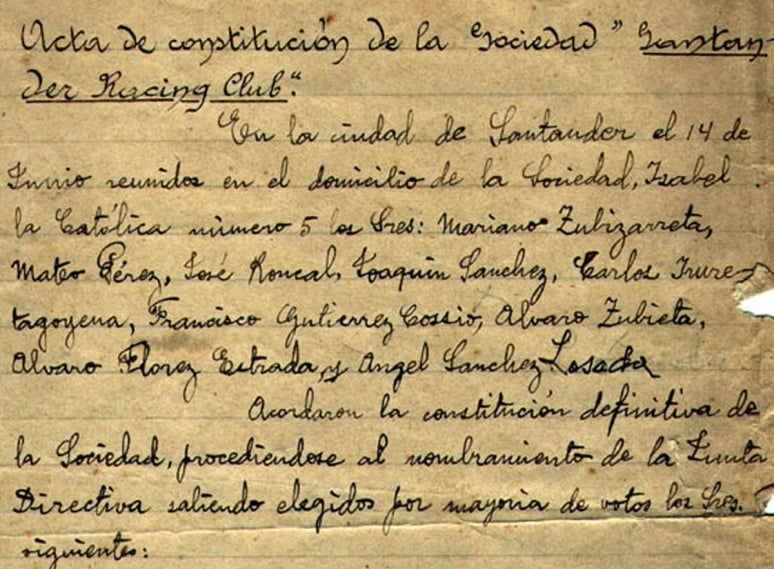 Acta de constitución de la Sociedad "Santan-
der Racing Club".
En la ciudad de Santander el 14 de
Junio reunidos en el domicilio de la Sociedad, Isabel
la Católica número 5 los Sres: Mariano Zubizarreta,
Mateo Pérez, José Roncal, Joaquin Sanchez, Carlos Irure-
tagoyena, Francisco Gutierrez Cossio, Alvaro Zubieta,
Alvaro Florez Estrada, y Angel Sanchez Losada
Acordaron la constitución definitiva de
la Sociedad, procediendose al nombramiento de la Junta
Directiva saliendo elegidos por mayoria de votos los Sres.
siguientes: